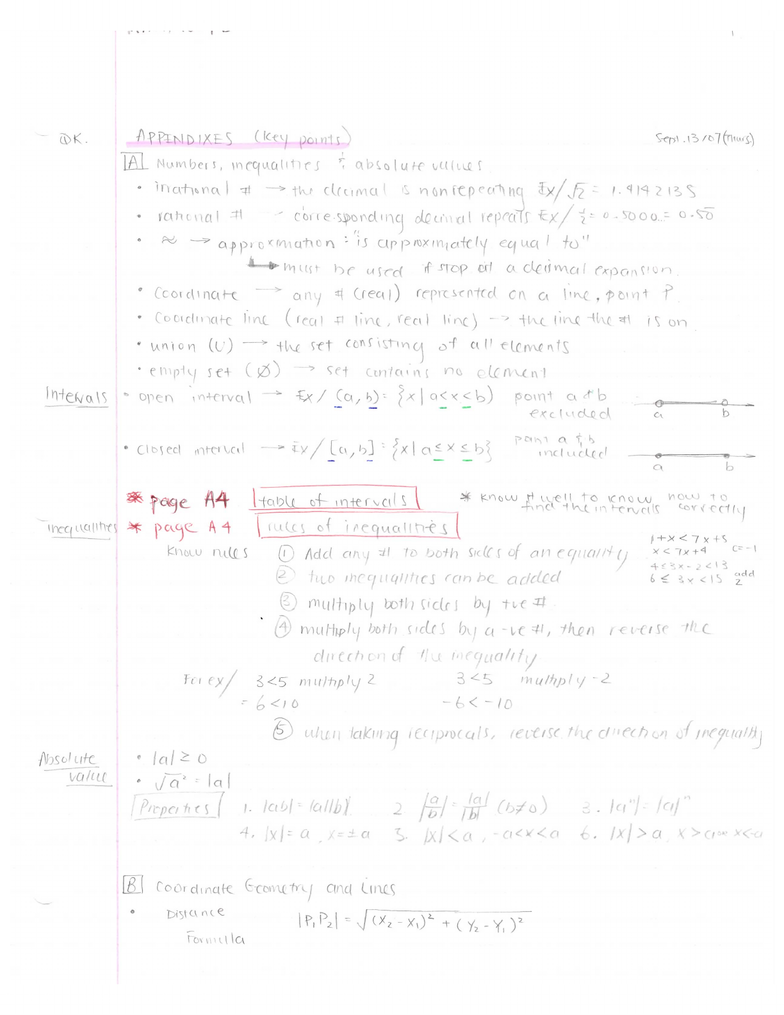 1
APPENDIXES (key points) Sept. 13/07 (Thurs)
A Numbers, inequalities & absolute values
• irrational # → the decimal is nonrepeating Ex/ √2 = 1.4142135
• rational # → corresponding decimal repeats Ex/ ½ = 0.5000.. = 0.50̅
• ≈ → approximation : "is approximately equal to"
↳ must be used if stop at a decimal expansion.
• Coordinate → any # (real) represented on a line, point P.
• Coordinate line (real # line, real line) → the line the # is on
• union (U) → the set consisting of all elements
• empty set (Ø) → set contains no element
Intervals • open interval → Ex/ (a, b) = {x | a<x<b) point a & b
excluded a b
• Closed interval → Ex/ [a, b] = {x | a≤x≤b} point a & b
included a b
* page A4 table of intervals * know # well to know how to
find the intervals correctly
inequalities * page A4 rules of inequalities
know rules ① Add any # to both sides of an equality
1+x<7x+5
x<7x+4 c=-1
4≤3x-2<13
6≤3x<15 add 2
② two inequalities can be added
③ multiply both sides by +ve #
④ multiply both sides by a -ve #, then reverse the
direction of the inequality
For ex/ 3<5 multiply 2 3<5 multiply -2
= 6<10 -6<-10
⑤ when taking reciprocals, reverse the direction of inequality
Absolute • |a| ≥ 0
value • √a² = |a|
Properties 1. |ab| = |a||b| 2 |a/b| = |a|/|b| (b≠0) 3. |aⁿ| = |a|ⁿ
4. |x| = a, x = ±a 5. |x| < a, -a<x<a 6. |x| > a, x > a or x<-a
B Coordinate Geometry and Lines
• Distance |P₁P₂| = √(X₂ - X₁)² + (Y₂ - Y₁)²
Formula